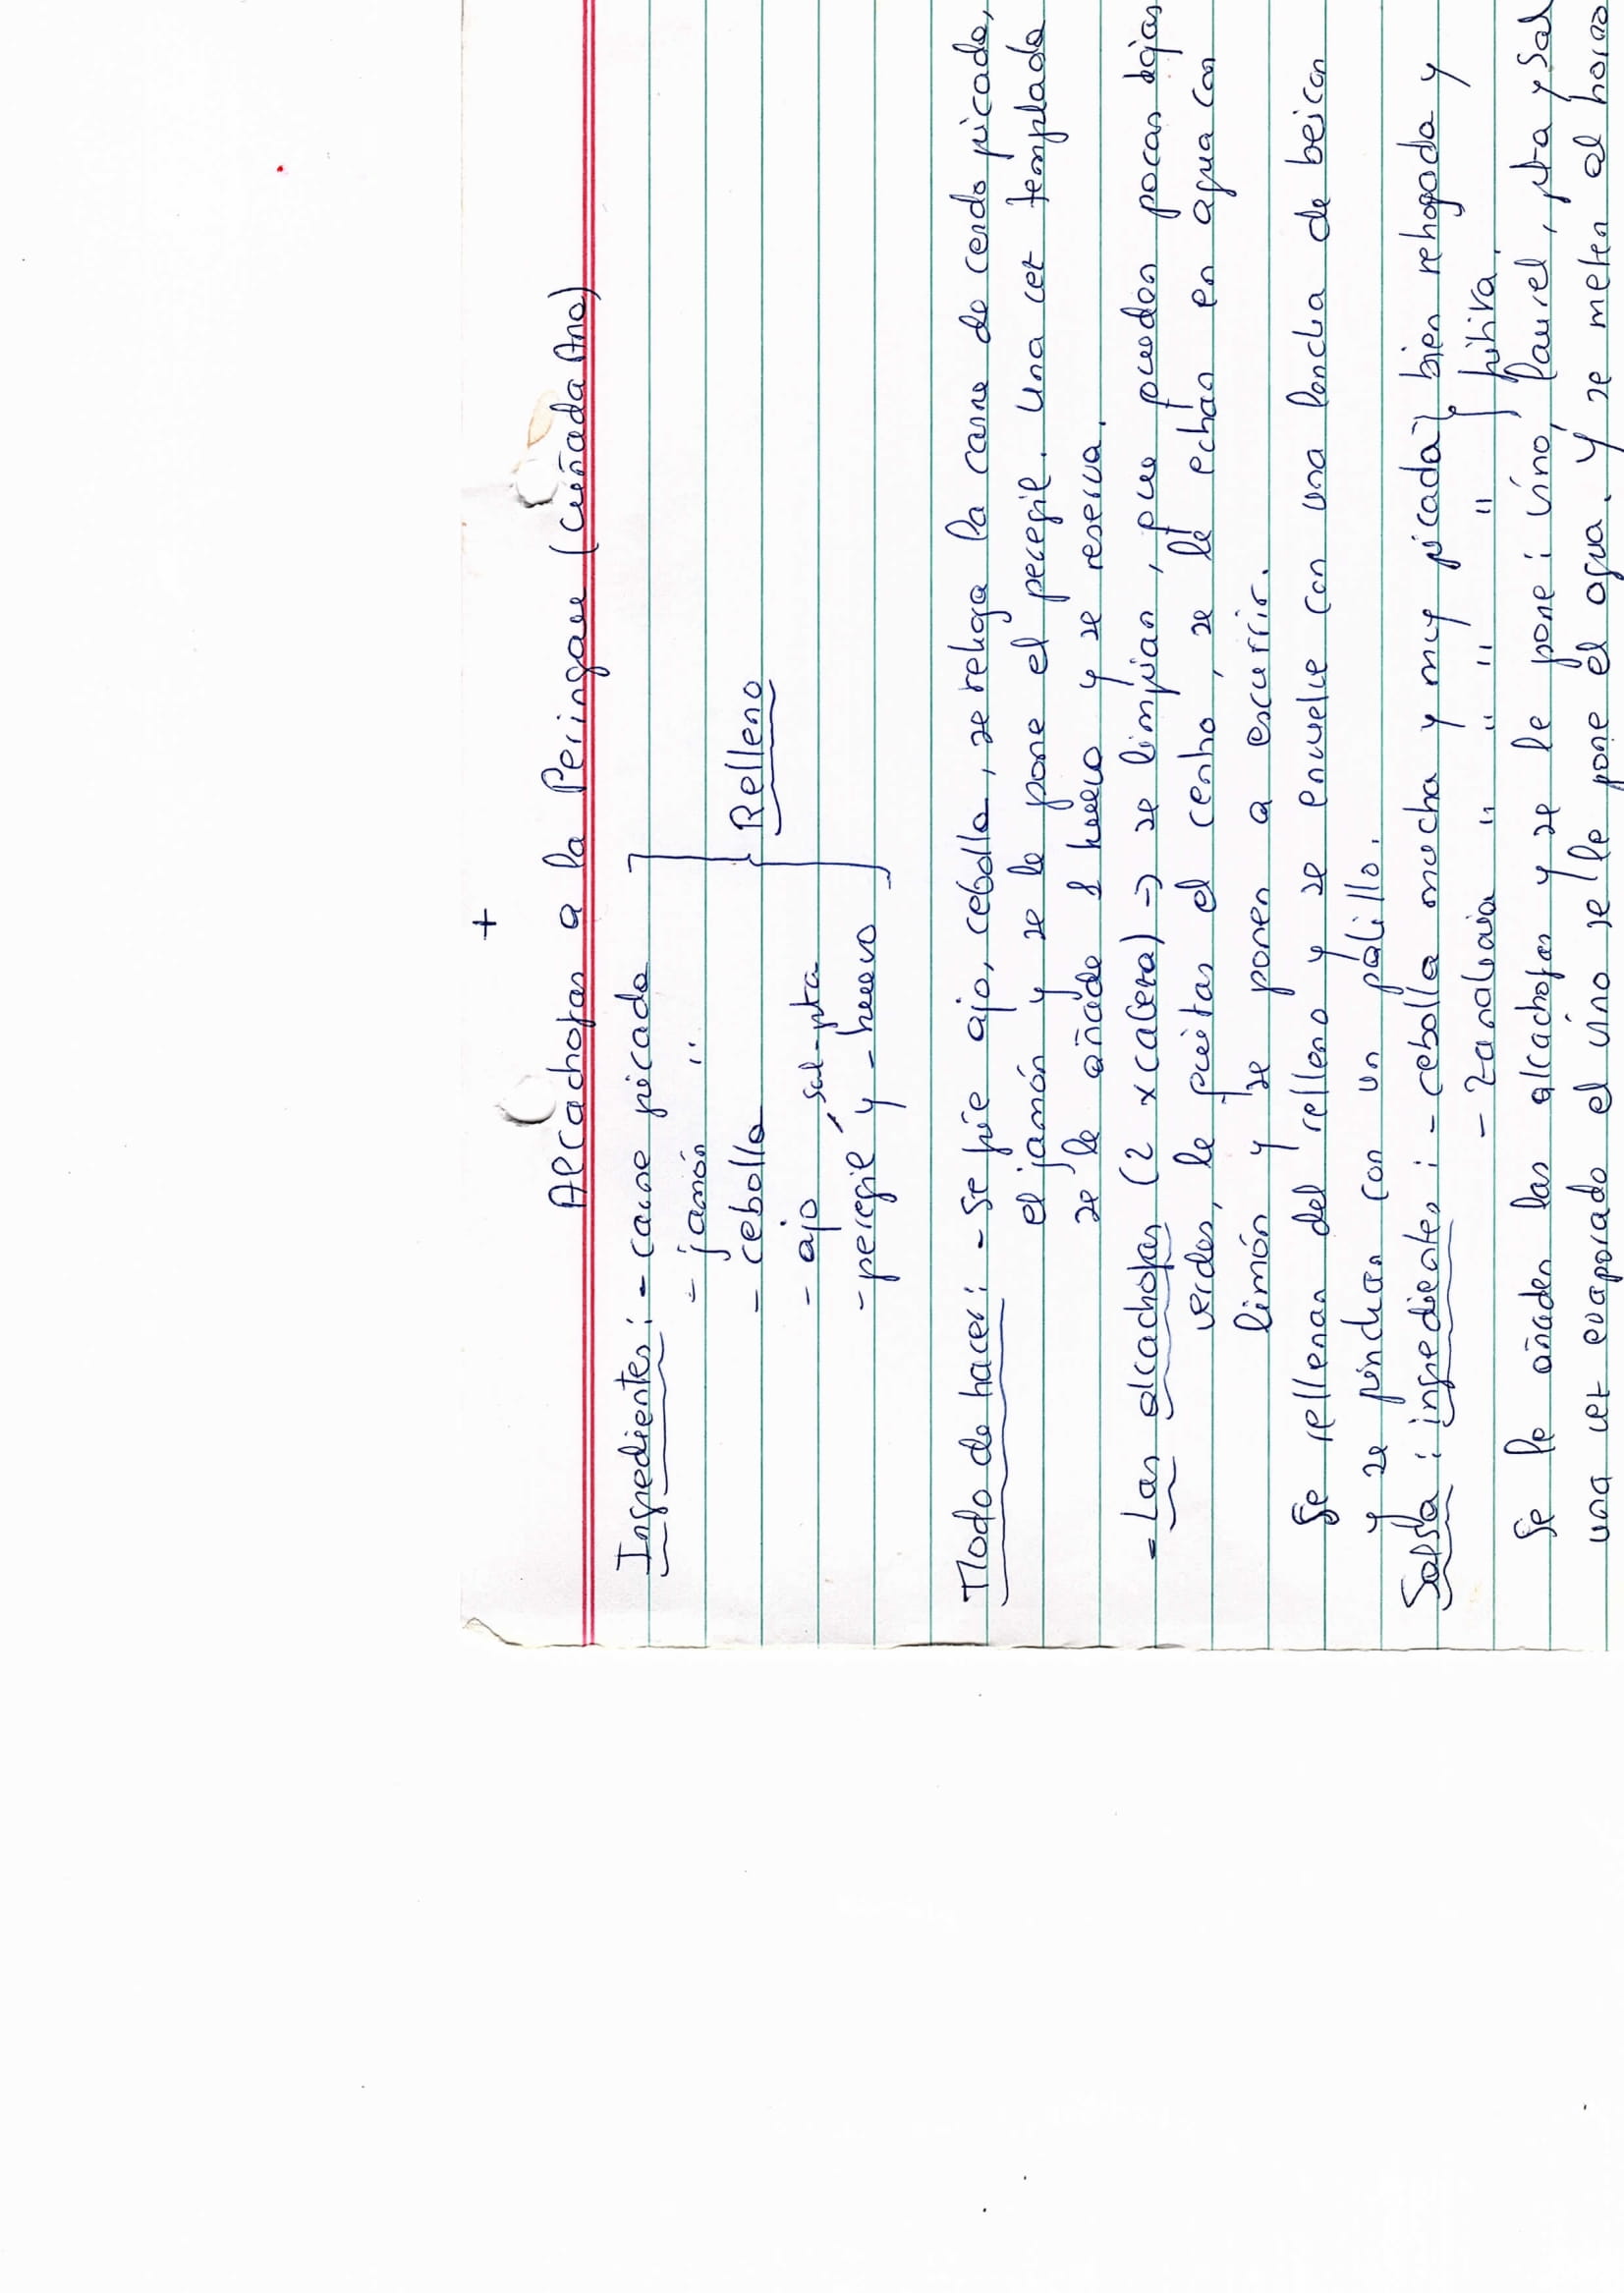 +
Alcachofas a la Peringave (Cuñada Ana)
Ingredientes: - carne picada
- jamón "
- cebolla
Relleno
- ajo, sal-pta
- peregil y - huevo
Modo de hacer: - Se fríe ajo, cebolla, se rehoga la carne de cerdo picada,
el jamón y se le pone el peregil. Una vez templada
se le añade 1 huevo y se reserva.
- Las alcachofas (2 x cabeza) → se limpian, que quedan pocas hojas
verdes, le quitas el centro, se le echan en agua con
limón y se ponen a escurrir.
Se rellenan del relleno y se envuelve con una loncha de beicon
y se pinchan con un palillo.
Salsa: ingredientes: - cebolla mucha y muy picada } bien rehogada y
- zanahoria " " " " } fritita.
Se le añaden las alcachofas y se le pone: vino, laurel, pta y sal
una vez evaporado el vino se le pone el agua. Y se meten al horno